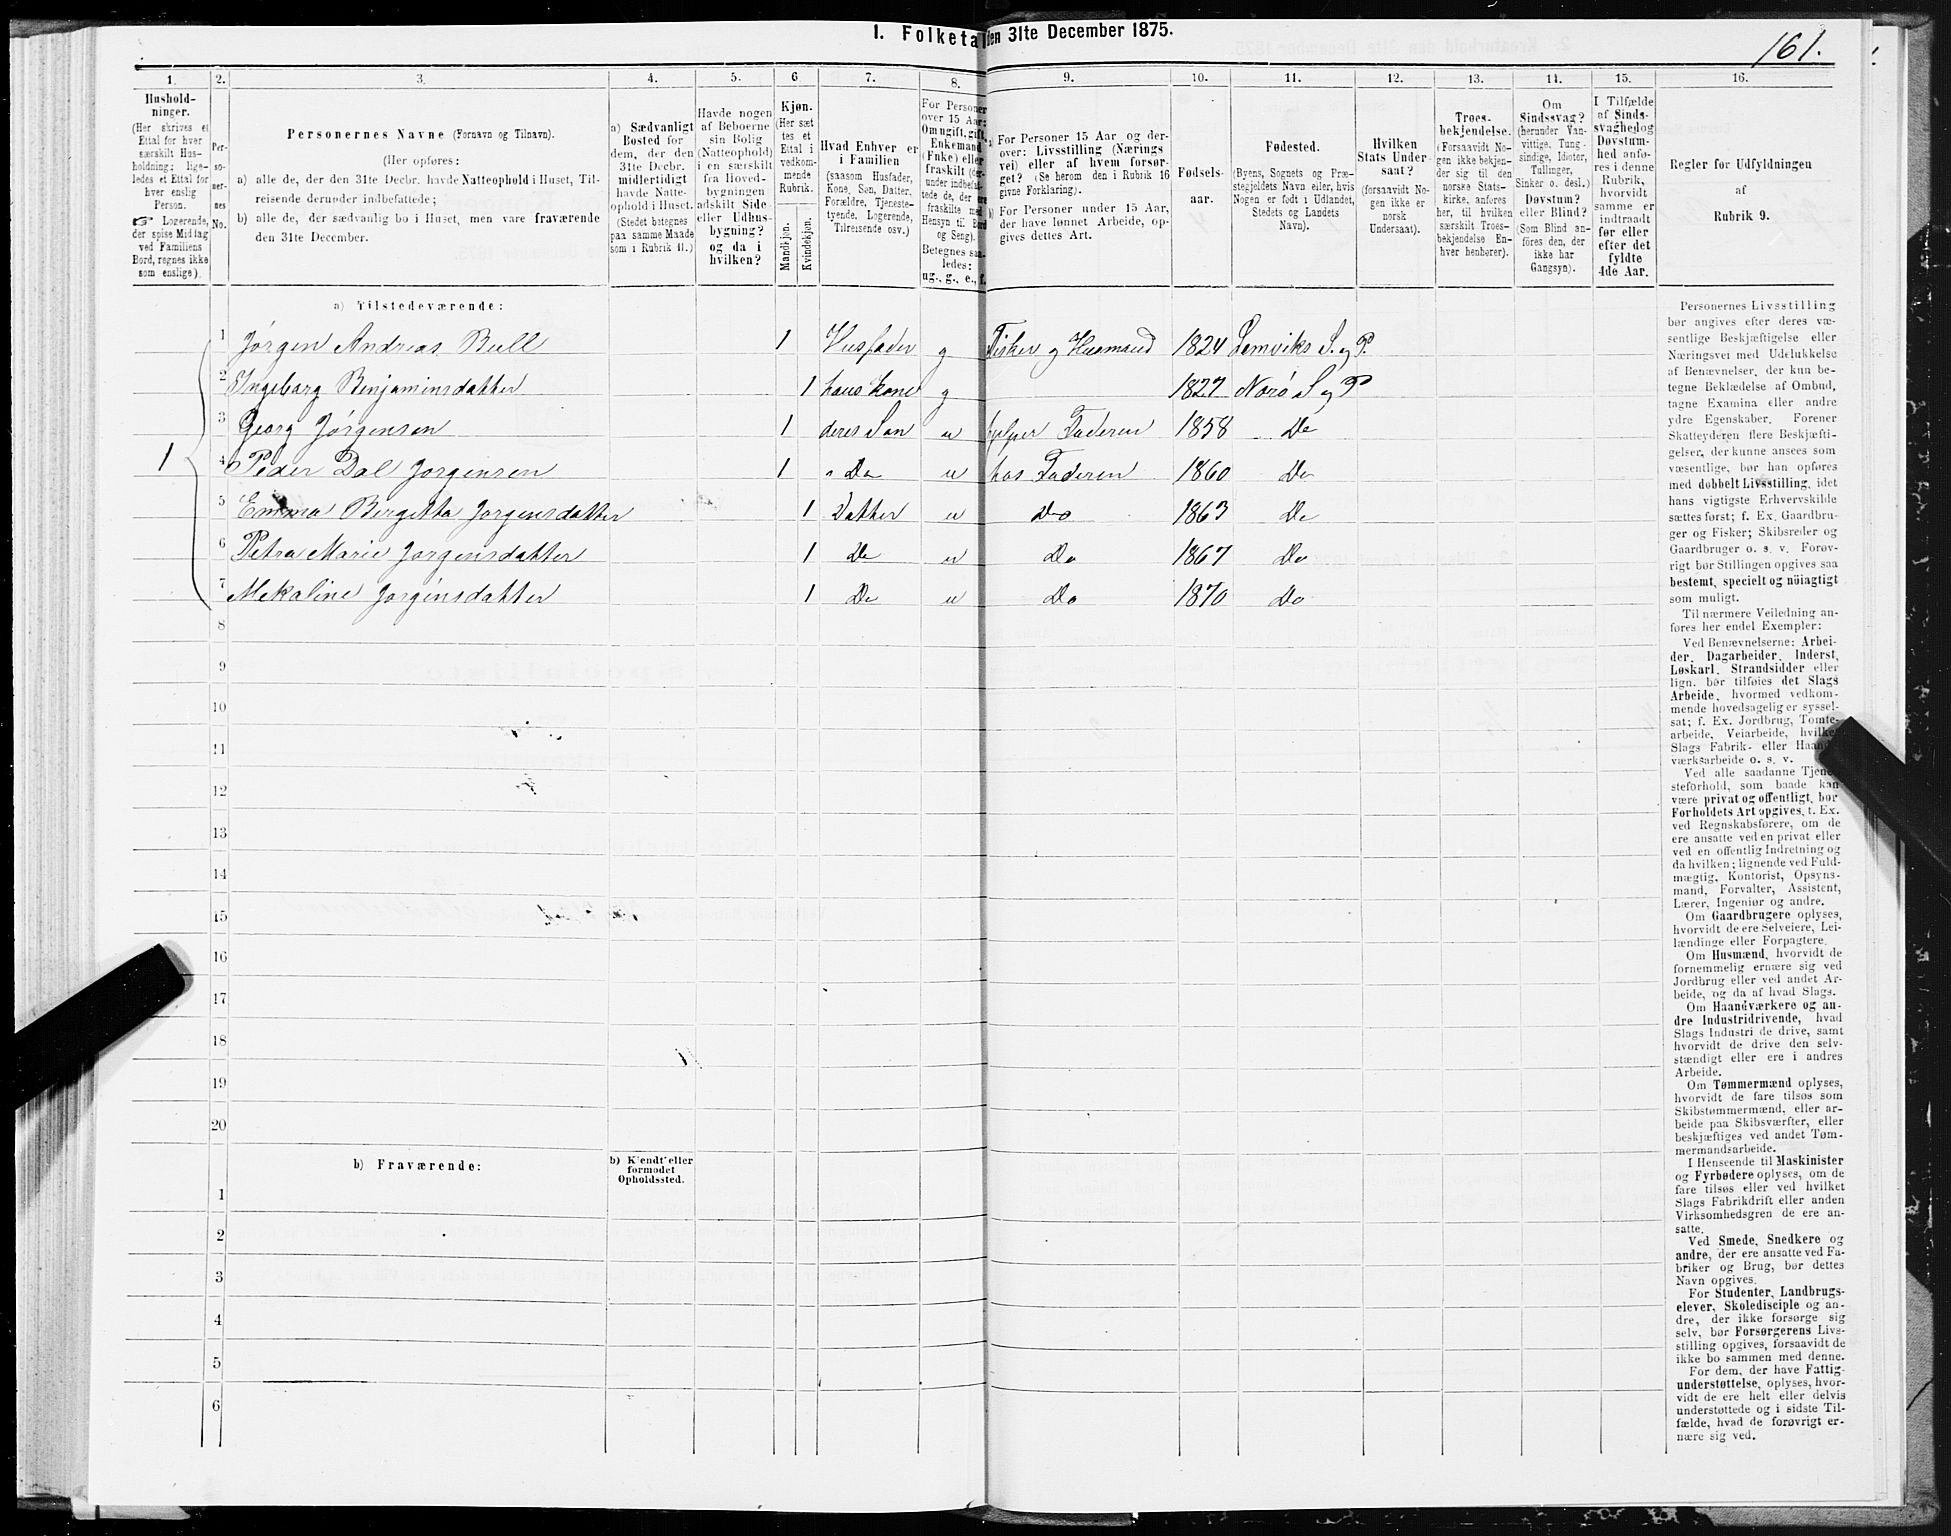 1. Folketal den 31te December 1875.
161.
1. 2. 3. 4. 5. 6 7. 8. 9. 10. 11. 12. 13. 14. 15. 16.
Hushold-
ninger.
(Her skrives et
Ettal for hver
særskilt Hus-
holdning; lige-
ledes et Ettal for
hver enslig
Person.
☞ Logerende,
der spise Middag
ved Familiens
Bord, regnes ikke
som enslige).
Per-
so-
ner-
nes
No.
Personernes Navne (Fornavn og Tilnavn).
(Her opføres:
a) alle de, der den 31te Decbr. havde Natteophold i Huset, Til-
reisende derunder indbefattede;
b) alle de, der sædvanlig bo i Huset, men vare fraværende
den 31te December.
a) Sædvanligt
Bosted for
dem, der den
31te Decbr.
midlertidigt
havde Natte-
ophold i Huset.
(Stedet betegnes
paa samme Maade
som i Rubrik 11.)
Havde nogen
af Beboerne
sin Bolig
(Natteophold)
i en særskilt
fra Hoved-
bygningen
adskilt Side
eller Udhus-
bygning?
og da i
hvilken?
Kjøn.
(Her sæt
tes et
Ettal i
vedkom-
mende
Rubrik.
Mandkjøn.
Kvindekjøn.
Hvad Enhver er
i Familien
(saasom Husfader,
Kone, Søn, Datter,
Forældre, Tjeneste-
tyende, Logerende,
Tilreisende osv.)
For Personer
over 15 Aar:
Om ugift, gift,
Enkemand
(Enke) eller
fraskilt
Betegnes saa-
ledes:
ug., g., e., f.
a) For Personer 15 Aar og der-
over: Livsstilling (Nærings
vei) eller af hvem forsør-
get? (Se herom den i Rubrik 16
givne Forklaring.)
b) For Personer under 15 Aar,
der have lønnet Arbeide, op-
gives dettes Art.
Fødsels-
aar.
Fødested.
(Byens, Sognets og Præ-
stegjeldets Navn eller, hvis
Nogen er født i Udlandet,
Stedets og Landets
Navn).
Hvilken
Stats Under-
saat?
(forsaavidt No-
gen ikke er
norsk
Undersaat).
Troes-
bekjendelse.
(Forsaavidt No-
gen ikke bekjen-
der sig til den
norske Stats-
kirke, anføres
her, til hvilken
særskilt Troes-
bekjendelse En-
hver henhører).
Om
Sindssvag?
(herunder Van-
vittige, Tung-
sindige, Idioter,
Tullinger,
Sinker o. desl.)
Døvstum?
eller Blind?
(Som Blind an-
føres den, der
ikke har
Gangsyn).
I Tilfælde
af Sinds-
svaghed og
Døvstum-
hed anfø-
res i denne
Rubrik,
hvorvidt
samme er
indtraadt
før eller
efter det
fyldte
4de Aar.
Regler før Udfyldningen
af
Rubrik 9.
a) Tilstedeværende:
1 Jørgen Andreas Bull 1 Husfader g Fisker og Husmand 1824 Lemviks S. og P.
2 Ingeborg Benjaminsdatter 1 hans kone g 1827 Norø S og P
3 Georg Jørgensen 1 deres Søn u hjelper Faderen 1858 Do
1 4 Peder Dal Jørgensen 1 " Do u hos Faderen 1860 Do
5 Emma Bergitta Jørgensdatter 1 Datter u Do 1863 Do
6 Petra Marie Jørgensdatter 1 Do u Do 1867 Do
7 Mekaline Jørgensdatter 1 Do u Do 1870 Do
8
9
10
11
12
13
14
15
16
17
18
19
20
b) Fraværende:
b) Kjendt eller
formodet
Opholdssted.
1
2
3
4
5
6
Personernes Livsstilling
bør angives efter deres væ-
sentlige Beskjæftigelse eller
Næringsvei med Udelukkelse
af Benævnelser, der kun be-
tegne Beklædelse af Ombud,
tagne Examina eller andre
ydre Egenskaber. Forener
Skatteyderen flere Beskjæfti-
gelser, der kunne ansees som
væsentlige, bør han opføres
med dobbelt Livsstilling, idet
hans vigtigste Erhvervskilde
sættes først; f. Ex. Gaardbru-
ger og Fisker; Skibsreder og
Gaardbruger o. s. v. Forøv-
rigt bør Stillingen opgives saa
bestemt, specielt og nöiagtigt
som muligt.
Til nærmere Veiledning an-
føres her endel Exempler:
Ved Benævnelserne: Arbei-
der, Dagarbeider, Inderst,
Løskarl, Strandsidder eller
lign. bør tilføies det Slags
Arbeide, hvormed vedkom-
mende hovedsagelig er syssel-
sat; f. Ex. Jordbrug, Tomte-
arbeide, Veiarbeide, hvilket
Slags Fabrik- eller Haand-
værksarbeide o. s. v.
Ved alle saadanne Tjene-
steforhold, som baade kan
være privat og offentligt, bør
Forholdets Art opgives, t. Ex.
ved Regnskabsførere, om de
ere ansatte ved en privat eller
ved en offentlig Indretning og
da hvilken; lignende ved Fuld-
mægtig, Kontorist, Opsyns-
mand, Forvalter, Assistent,
Lærer, Ingeniør og andre.
Om Gaardbrugere oplyses,
hvorvidt de ere Selveiere, Lei-
lændinge eller Forpagtere.
Om Husmænd, hvorvidt de
fornemmelig ernære sig ved
Jordbrug eller ved andet Ar-
beide, og da af hvad Slags.
Om Haandværkere og an-
dre Industridrivende, hvad
Slags Industri de drive, samt
hvorvidt de drive den selv-
stændigt eller ere i andres
Arbeide.
Om Tømmermænd oplyses,
hvorvidt de fare tilsøs som
Skibstømmermænd, eller ar-
beide paa Skibsværfter, eller
beskjæftiges ved andet Tøm-
mermandsarbeide.
I Henseende til Maskinister
og Fyrbødere oplyses, om de
fare tilsøs eller ved hvilket
Slags Fabrikdrift eller anden
Virksomhedsgren de ere an-
satte.
Ved Smede, Snedkere og
andre, der ere ansatte ved Fa-
briker og Brug, bør dettes
Navn opgives.
For Studenter, Landbrugs-
elever, Skoledisciple og an-
dre, der ikke forsørge sig
selv, bør Forsørgerens Livs-
stilling opgives, forsaavidt de
ikke bo sammen med denne.
For dem, der have Fattig-
understøttelse, oplyses, hvor-
vidt de ere helt eller delvis
understøttede og i sidste Til-
fælde, hvad de forøvrigt er-
nære sig ved.